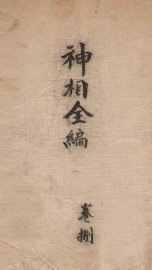 神相全編
卷捌